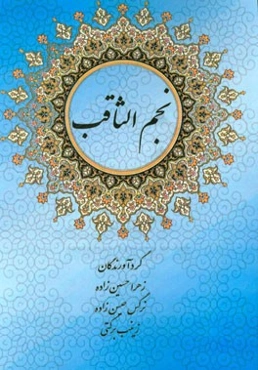 نجم الثاقب
گردآورندگان
زهرا حسین زاده
نرگس حسین زاده
زینب برکتی